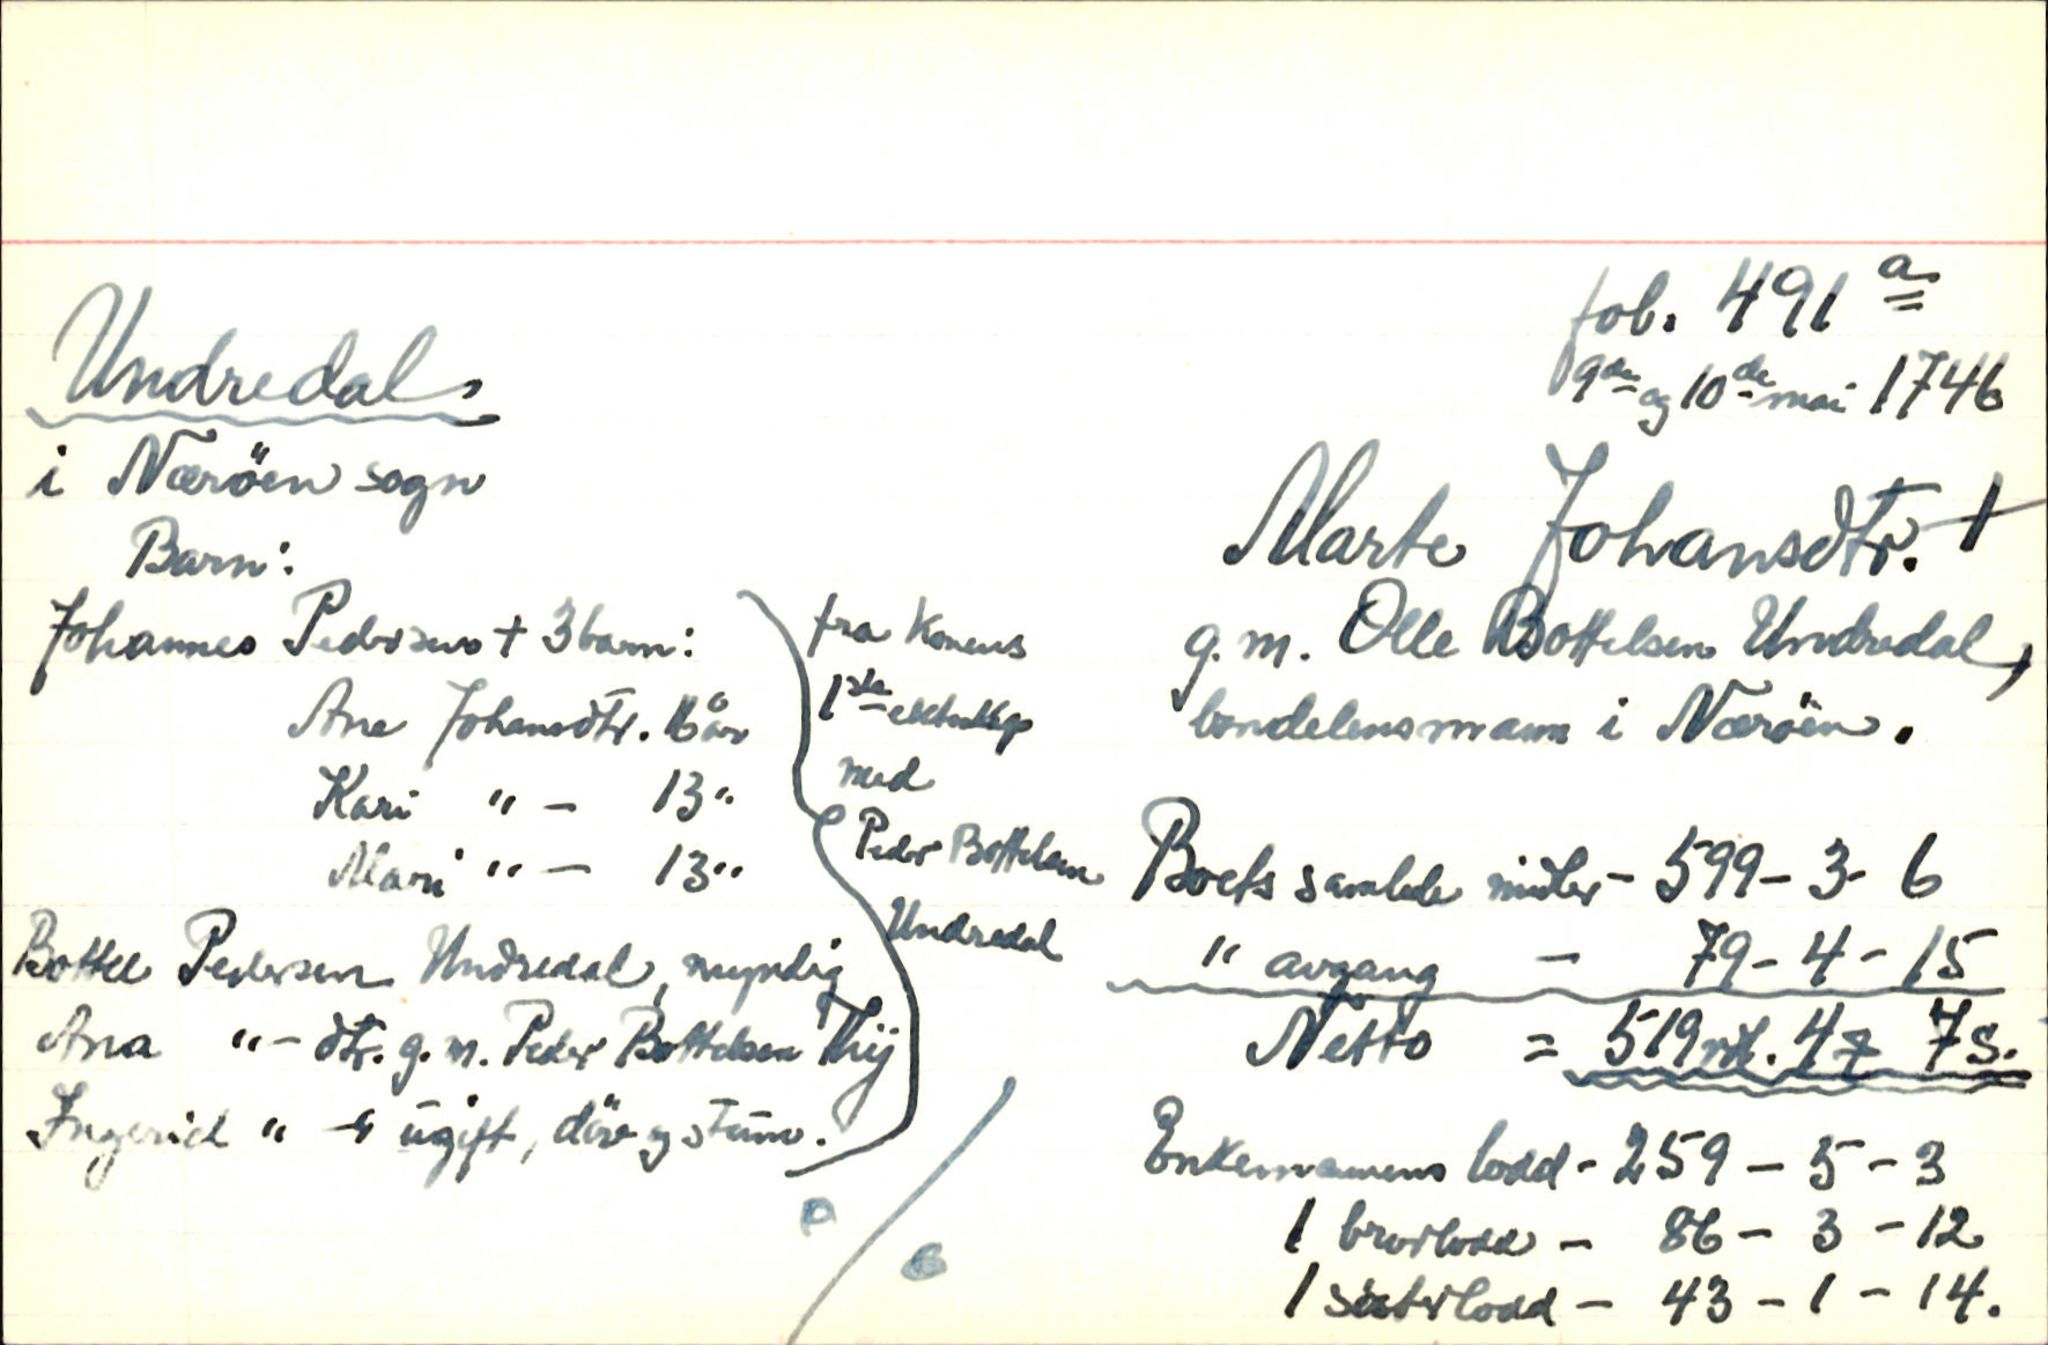 Undredal,
i Næröen sogn
Barn:
Johannes Pedersens + 3 barn:
Ane Johansdtr. 16 år
Kari " - 13 "
Mari " - 13 "
Bottel Pedersen Undredal, myndig
Ana " - dtr. g. m. Peder Bottelsen Thij
Ingerid " - " ugift, döv og stum.
fra konens
1ste ekteskap
med
Peder Bottelsen
Undredal
fol. 491 a
9de og 10de mai 1746
Marte Johansdtr. +
g. m. Olle Bottelsen Undredal,
bondelensmann i Næröen.
Boets samlede midler - 599 - 3 - 6
" avgang - 79 - 4 - 15
Netto = 519 rd. 4 7 s.
Enkemannens lodd - 259 - 5 - 3
1 brorlodd - 86 - 3 - 12
1 sösterlodd - 43 - 1 - 14.